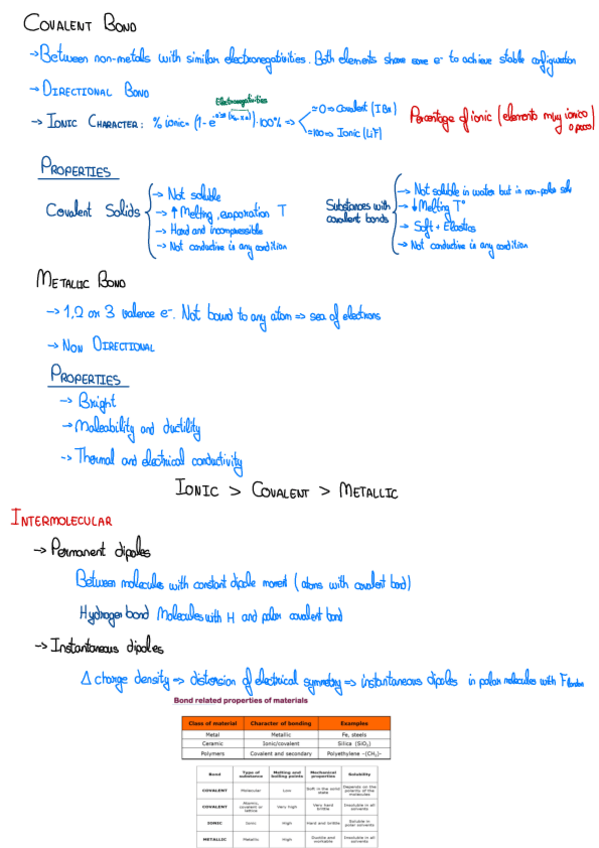 COVALENT BOND
→ Between non-metals with similar electronegativities. Both elements share some e⁻ to achieve stable configuration
→ DIRECTIONAL BOND
Electronegativities
→ IONIC CHARACTER: % ionic = (1 - e
)·100% ⇒
≈0 ⇒ Covalent (IBr)
≈100 ⇒ Ionic (LiF)
Percentage of ionic (elemento muy iónico o poco)
PROPERTIES
Covalent Solids
→ Not soluble
→ ↑ Melting, evaporation T
→ Hard and incompressible
→ Not conductive in any condition
Substances with covalent bonds
→ Not soluble in water but in non-polar
→ ↓ Melting Tº
→ Soft + Elastics
→ Not conductive in any condition
METALLIC BOND
→ 1,2 or 3 valence e⁻. Not bound to any atom ⇒ sea of electrons
→ NON DIRECTIONAL
PROPERTIES
→ Bright
→ Maleability and ductility
→ Thermal and electrical conductivity
IONIC > COVALENT > METALLIC
INTERMOLECULAR
→ Permanent dipoles
Between molecules with constant dipole moment (atoms with covalent bond)
Hydrogen bond Molecules with H and polar covalent bond
→ Instantaneous dipoles
Δ charge density ⇒ distorsion of electrical symmetry ⇒ instantaneous dipoles in polar molecules with F london
Bond related properties of materials
Class of material Character of bonding Examples
Metal Metallic Fe, steels
Ceramic Ionic/covalent Silica (SiO₂)
Polymers Covalent and secondary Polyethylene -(CH₂)-
Bond Type of substance Melting and boiling points Mechanical properties Solubility
COVALENT Molecular Low Soft in the solid state Depends on the polarity of the molecules
COVALENT Atomic, covalent or lattice Very high Very hard brittle Insoluble in all solvents
IONIC Ionic High Hard and brittle Soluble in polar solvents
METALLIC Metallic High Ductile and Insoluble in all solvents